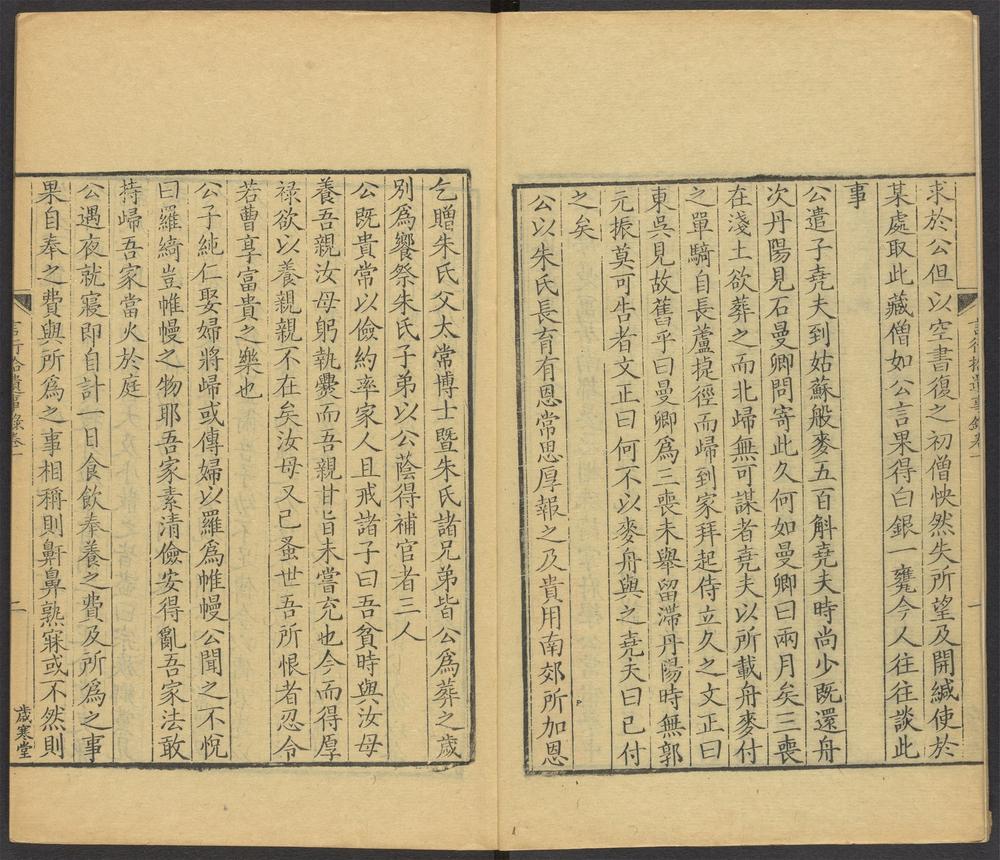 求於公但以空書復之初僧怏然失所望及開緘使於
某處取此藏僧如公言果得白銀一甕今人往往談此
事
公遣子堯夫到姑蘇般麥五百斛堯夫時尚少既還舟
次丹陽見石曼卿問寄此久何如曼卿曰兩月矣三喪
在淺土欲葬之而北歸無可謀者堯夫以所載舟麥付
之單騎自長蘆捷徑而歸到家拜起侍立久之文正曰
東吳見故舊乎曰曼卿爲三喪未舉留滯丹陽時無郭
元振莫可告者文正曰何不以麥舟與之堯夫曰已付
之矣
公以朱氏長育有恩常思厚報之及貴用南郊所加恩
乞贈朱氏父太常博士暨朱氏諸兄弟皆公爲葬之歲
別爲饗祭朱氏子弟以公蔭得補官者三人
公既貴常以儉約率家人且戒諸子曰吾貧時與汝母
養吾親汝母躬執爨而吾親甘旨未嘗充也今而得厚
禄欲以養親親不在矣汝母又已蚤世吾所恨者忍令
若曹享富貴之樂也
公子純仁娶婦將歸或傳婦以羅爲帷幔公聞之不悅
曰羅綺豈帷幔之物耶吾家素清儉安得亂吾家法敢
持歸吾家當火於庭
公遇夜就寢即自計一日食飲奉養之費及所爲之事
果自奉之費與所爲之事相稱則鼾鼻熟寐或不然則
言行拾遺事錄卷一
二
歲寒堂